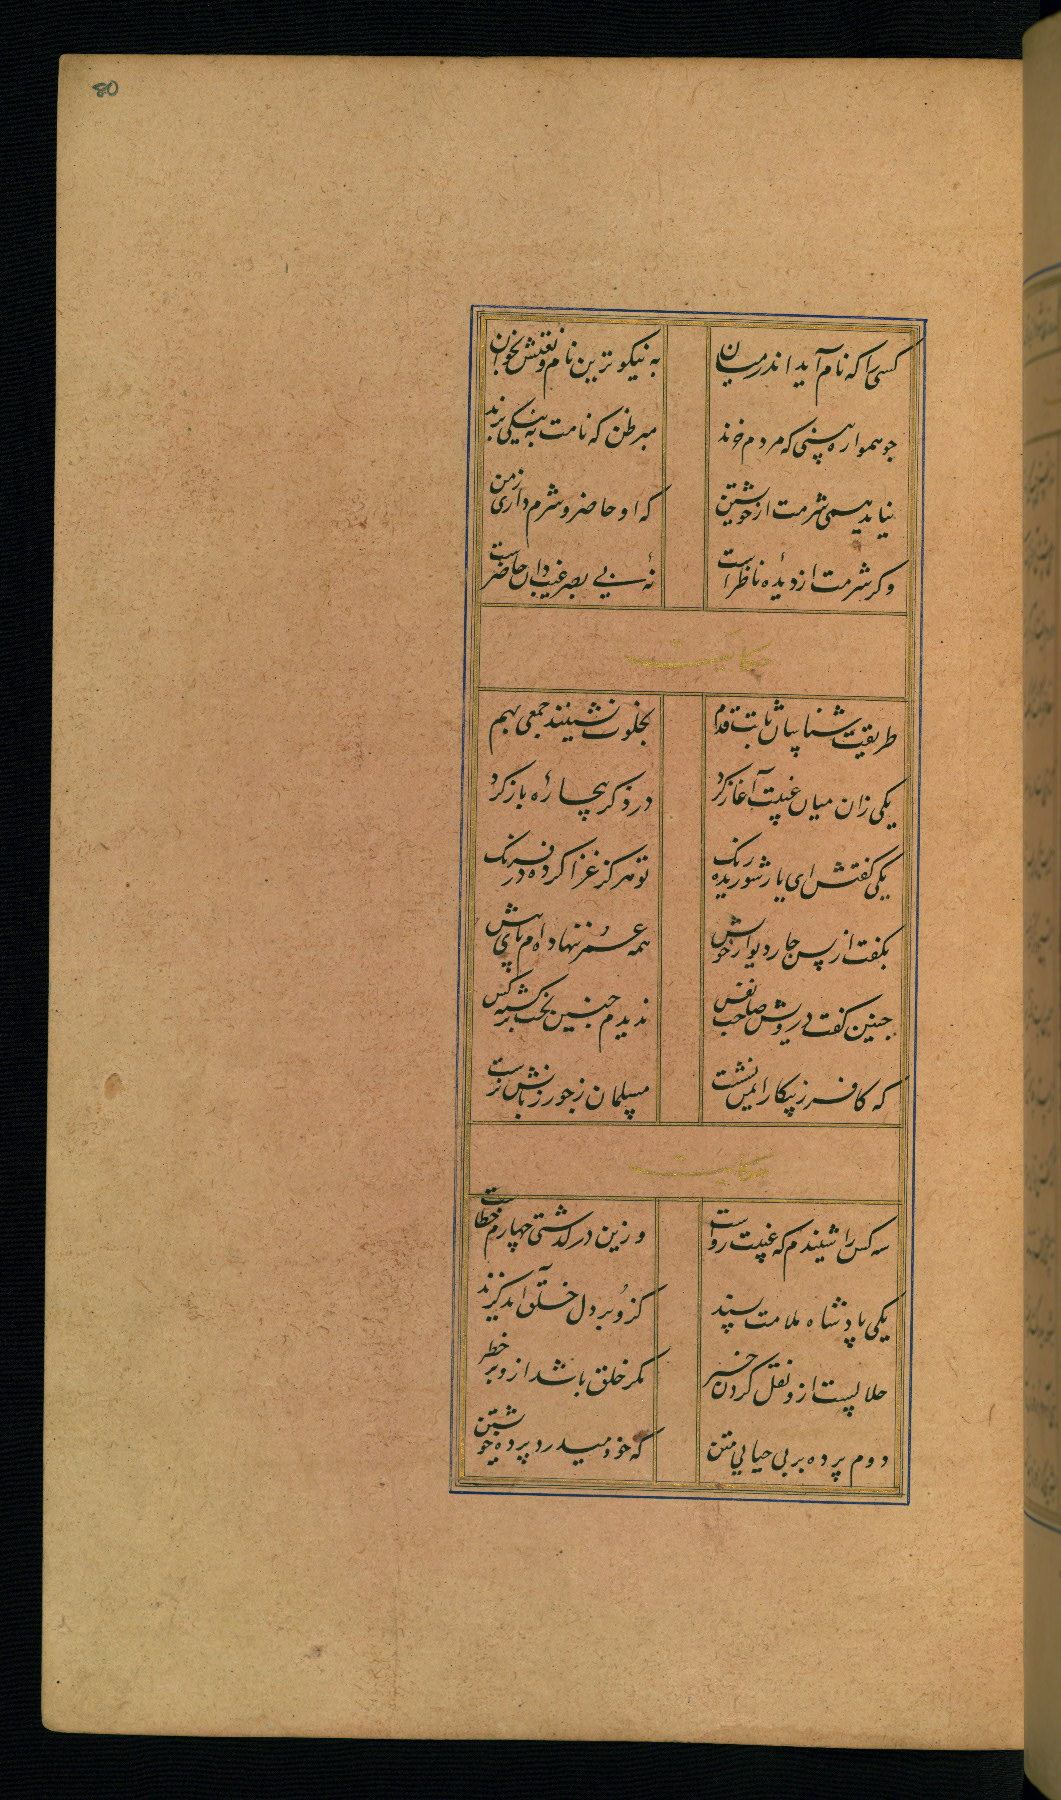 80
کسی را که نام آید اندر میان به نیکو ترین نام و نغتش بخوان
چو همواره بینی که مردم خرند مبر ظن که نامت به نیکی برند
نیاید همی شرمت از خویشتن که او حاضر و شرم داری زمن
وکر شرمت از دیدهٔ ناظر است نهٔ بی بصر غیب دان حاضر است
حکایت
طریقت شناسان ثابت قدم بخلوت نشینند جمعی بهم
یکی زان میان غیبت آغاز کرد در ذکر بیچارهٔ باز کرد
یکی کفتش ای یار شوریده رنک تو هرکز غزا کردهٔ در فرنک
بکفت از پس چار دیوار خویش همه عمر ننهاده ام پای پیش
چنین کفت درویش صاحب نفس ندیدم چنین بخت برکشته کس
که کافر ز پیکارش ایمن نشست مسلمان ز جور زبانش نرست
حکایت
سه کس را شنیدم که غیبت رواست وزین درکذشتی چهارم خطاست
یکی پادشاه ملامت پسند کزو بر دل خلق آید کزند
حلالست ازو نقل کردن خبر مکر خلق باشد ازو بر خطر
دوم پرده بر بی حیایی متن که خود میدرد پرده خویشتن